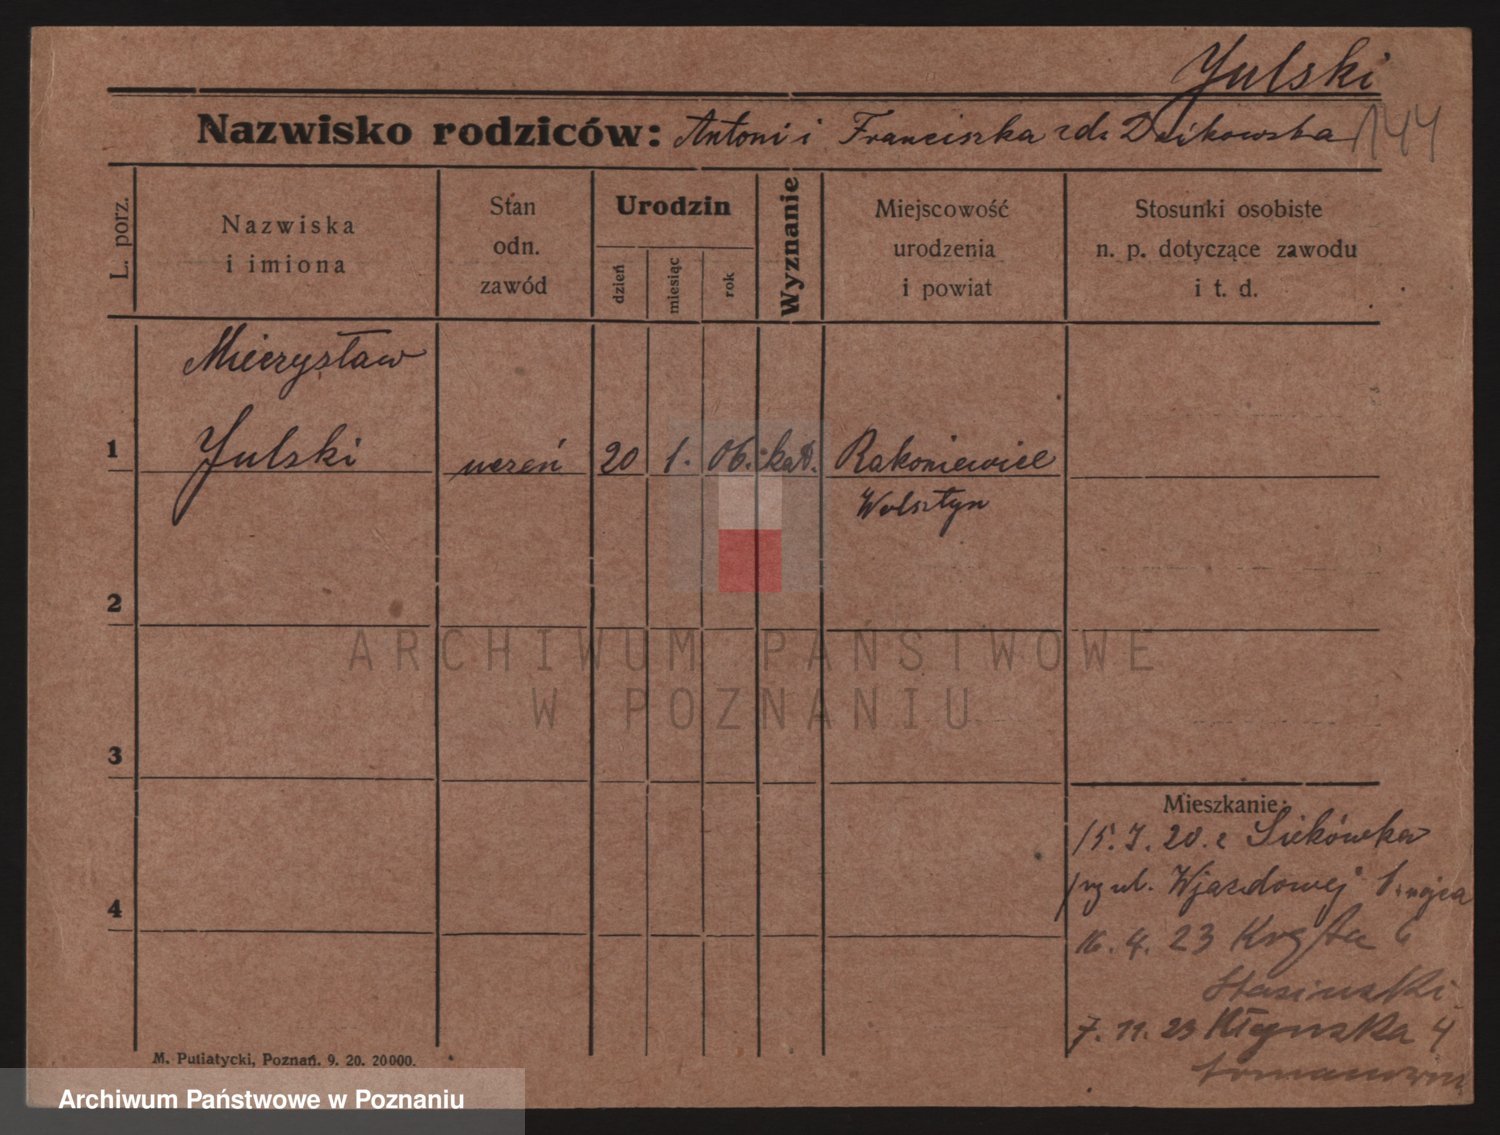 Julski
Nazwisko rodziców: Antoni i Franciszka zd. Dzikowska
144
L. porz.
Nazwiska
i imiona
Stan
odn.
zawód
Urodzin
dzień
miesiąc
rok
Wyznanie
Miejscowość
urodzenia
i powiat
Stosunki osobiste
n. p. dotyczące zawodu
i t. d.
Mieczysław
1 Julski uczeń 20 1. 06. kat. Rakoniewice
Wolsztyn
2
ARCHIWUM PAŃSTWOWE
W POZNANIU
3
Mieszkanie:
15.7.20. z Siekówka
ul. Wjazdowej 1. ojca
4
16. 4. 23 Krzyża 6
Stasiński
7. 11. 23
4
M. Putiatycki, Poznań. 9. 20. 20000.
Archiwum Państwowe w Poznaniu